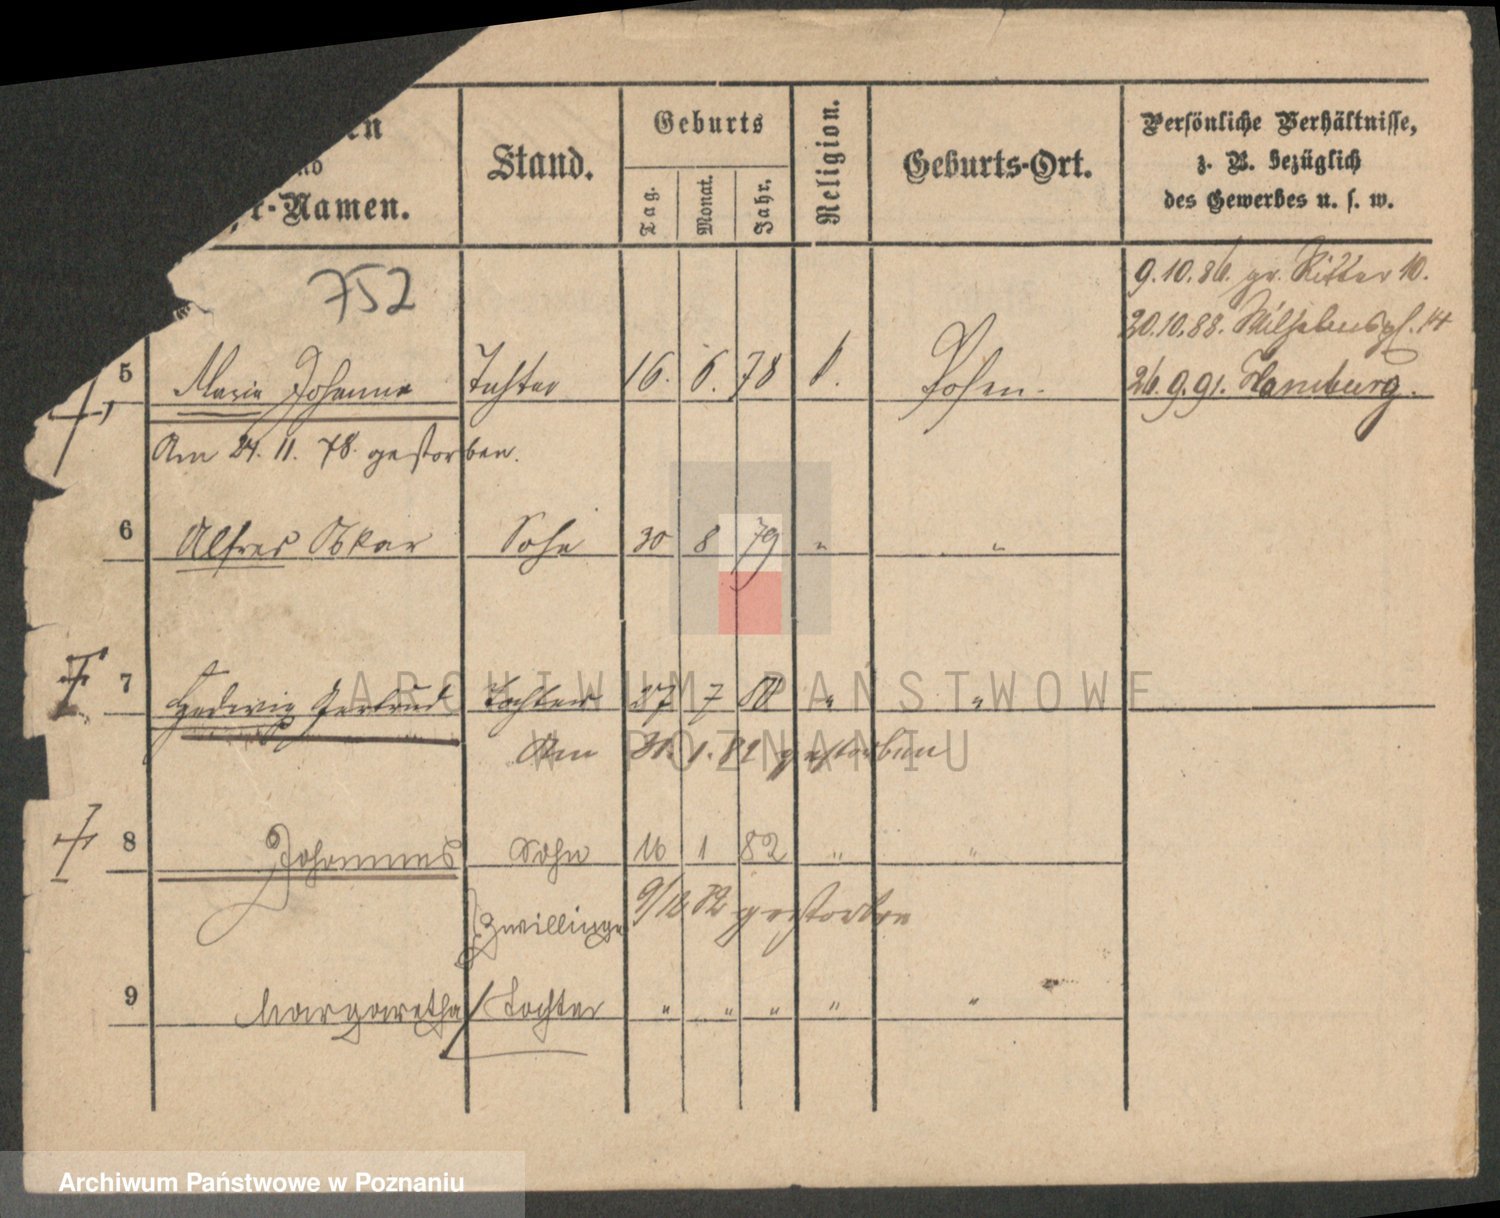 en
nd
r-Namen.
Stand.
Geburts
Tag.
Monat.
Jahr.
Religion.
Geburts-Ort.
Persönliche Verhältnisse,
z. B. bezüglich
des Gewerbes u. s. w.
752
9.10.86. gr. Ritter 10.
20.10.88. Wilhelmspl. 14
5 Maria Johanna Tochter 16. 6. 78 Posen. 26.9.91. Hamburg.
Am 24. 11. 78. gestorben.
6 Alfred Oskar Sohn 30 8 79 " "
7 Hedwig Gertrud Tochter 27 7 80 " "
Am 31. 1. 82 gestorben
8 Johannes Sohn 16 1 82 " "
9/12 82 gestorben
Zwillinge
9 Margaretha Tochter " " " " "
ARCHIWUM PAŃSTWOWE
W POZNANIU
Archiwum Państwowe w Poznaniu